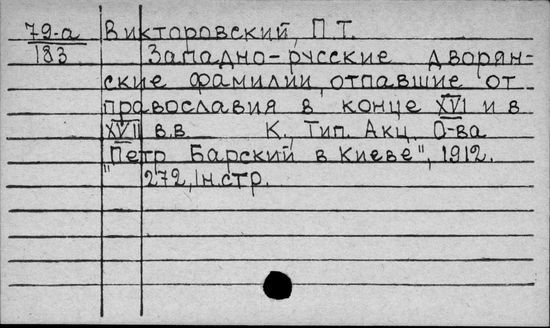 79-а Викторовский, П.Т.
183 Западно-русские дворян-
ские фамилии, отпавшие от
православия в конце XVI и в
XVII в.в. К., Тип. Акц. О-ва
"Петр Барский в Киеве", 1912.
272, 1н.стр.